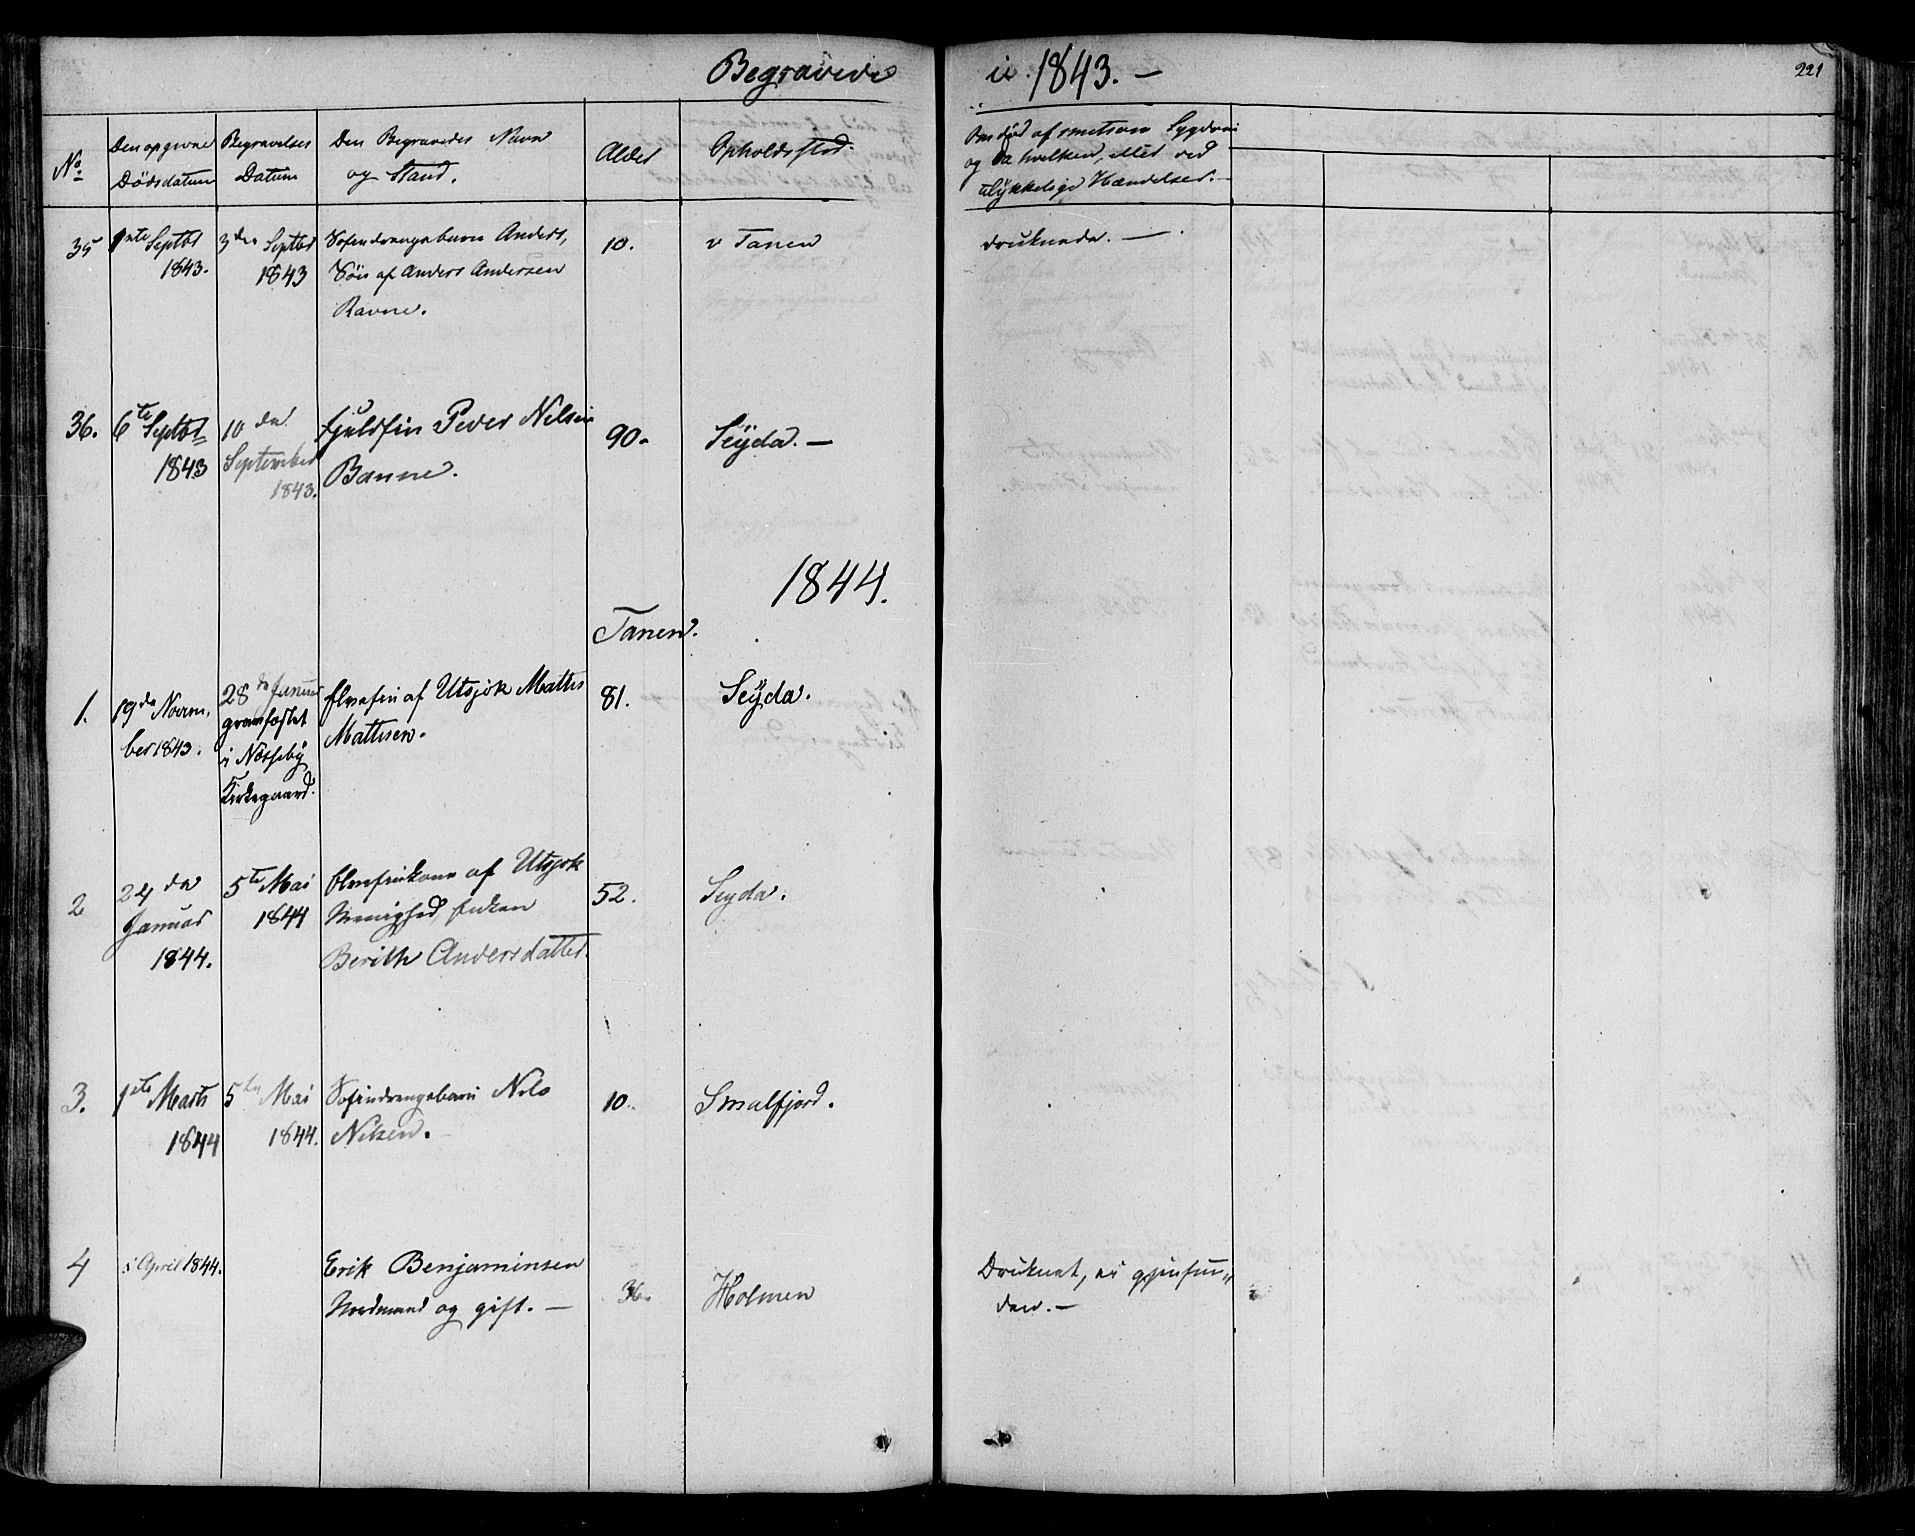 Begravede i 1843. —
221
No
Den opgivne Dödsdatum
Begravelses Datum
Den Begravedes Navn og Stand.
Alder
Opholdssted.
Om död af smitsom Sygdom og da hvilken, eller ved ulykkelige Hændelser. —
35
1ste Septbr 1843.
3die Septbr 1843
Söfindrengebarn Anders,
Sön af Anders Andersen
Ravne.
10.
v Tanen
druknede. —
36.
6te Septbr 1843
10de September 1843.
Fjeldfin Peder Nilsen
Banne.
90.
Seÿda. —
1844.
Tanen.
1.
19de Novem, ber 1843.
28de Januar
gravfæstet
i Næsseby
Kirkegaard.
Elvefin af Utsjok Mattis
Mattisen.
81.
Seÿda.
2
24de Januar 1844.
5te Mai 1844
Elvefinkone af Utsjok
Menighed, Enken
Berith Andersdatter.
52.
Seyda.
3.
1ste Marts 1844
5te Mai 1844.
Söfindrengebarn Nils
Nilsen.
10.
Smalfjord.
4
i April 1844.
Erik Benjaminsen
Nordmand og gift. —
36.
Holmen
Druknet, ei gjenfun„
den. —